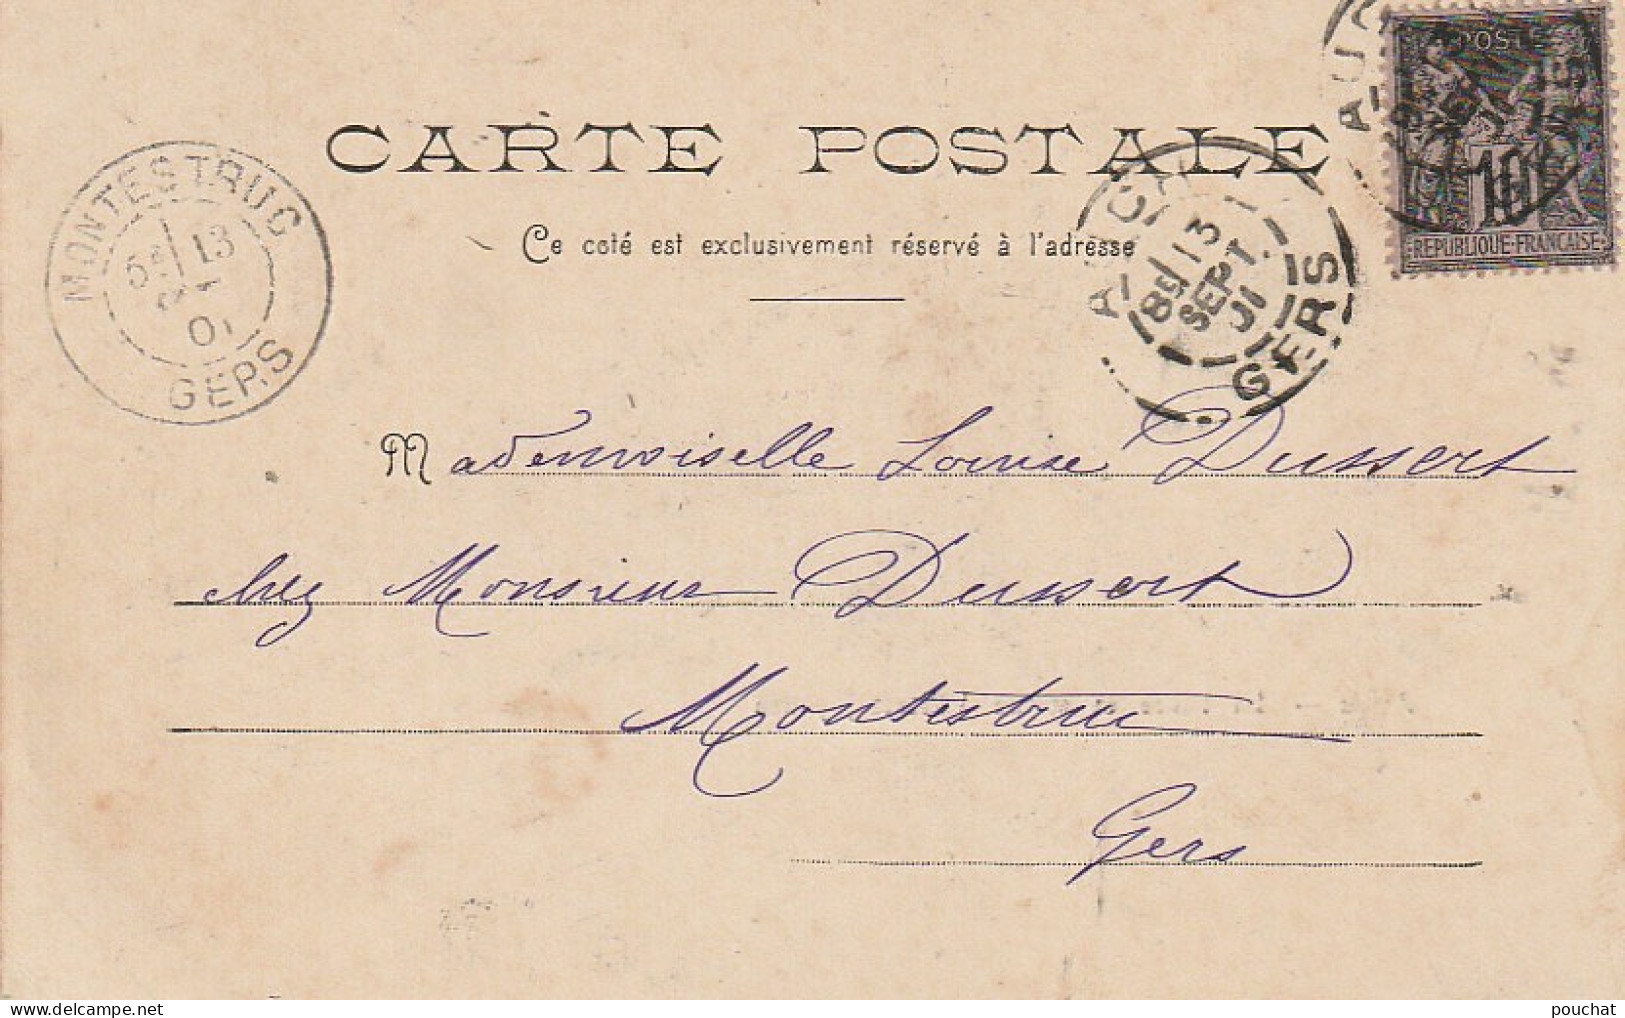 CARTE POSTALE
Ce coté est exclusivement réservé à l'adresse
MONTESTRUC
13
GERS
AUCH
13
SEPT
01
GERS
POSTE
10
REPUBLIQUE FRANCAISE
Mademoiselle Louise Dussert
chez Monsieur Dussert
Montestruc
Gers
pouchat